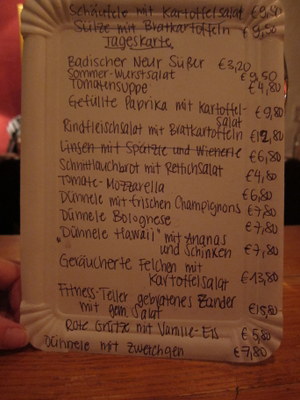 Schäufele mit Kartoffelsalat €9,80
Sülze mit Bratkartoffeln €9,50
Tageskarte
Badischer Neur Süßer €3,20
Sommer-Wurstsalat €9,50
Tomatensuppe €4,80
Gefüllte Paprika mit Kartoffel-
salat €9,80
Rindfleischsalat mit Bratkartoffeln €12,80
Linsen mit Spätzle und Wienerle €6,80
Schnittlauchbrot mit Rettichsalat €4,80
Tomate-Mozzarella €6,80
Dünnele mit frischen Champignons €7,80
Dünnele Bolognese €7,80
„Dünnele Hawaii" mit Ananas
und Schinken €7,80
Geräucherte Felchen mit
Kartoffelsalat €13,80
Fitness-Teller gebratenes Zander
mit gem. Salat €15,80
Rote Grütze mit Vanille-Eis €5,80
Dünnele mit Zwetchgen €7,80